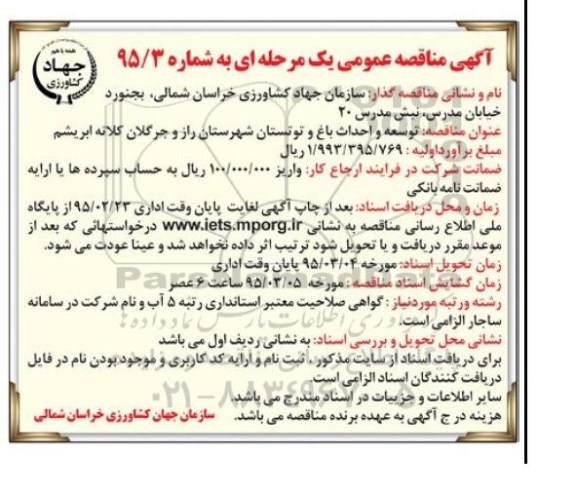 آگهی مناقصه عمومی یک مرحله ای به شماره ۹۵/۳
همیشه با هم
جهاد
کشاورزی
نام و نشانی مناقصه گذار: سازمان جهاد کشاورزی خراسان شمالی، بجنورد
خیابان مدرس، نبش مدرس ۲۰
عنوان مناقصه: توسعه و احداث باغ و توتستان شهرستان راز و جرگلان کلاته ابریشم
مبلغ برآورد اولیه: ۱/۹۹۳/۳۹۵/۷۶۹ ریال
ضمانت شرکت در فرایند ارجاع کار: واریز ۱۰۰/۰۰۰/۰۰۰ ریال به حساب سپرده ها یا ارایه
ضمانت نامه بانکی
زمان و محل دریافت اسناد: بعد از چاپ آگهی لغایت پایان وقت اداری ۹۵/۰۲/۲۳ از پایگاه
ملی اطلاع رسانی مناقصه به نشانی www.iets.mporg.ir درخواستهائی که بعد از
موعد مقرر دریافت و یا تحویل شود ترتیب اثر داده نخواهد شد و عینا عودت می شود.
زمان تحویل اسناد: مورخه ۹۵/۰۳/۰۴ پایان وقت اداری
زمان گشایش اسناد مناقصه: مورخه ۹۵/۰۳/۰۵ ساعت ۶ عصر
رشته و رتبه مورد نیاز: گواهی صلاحیت معتبر استانداری رتبه ۵ آب و نام شرکت در سامانه
ساجار الزامی است.
نشانی محل تحویل و بررسی اسناد: به نشانی ردیف اول می باشد
برای دریافت اسناد از سایت مذکور، ثبت نام و ارایه کد کاربری و موجود بودن نام در فایل
دریافت کنندگان اسناد الزامی است.
سایر اطلاعات و جزییات در اسناد مندرج می باشد.
هزینه درج آگهی به عهده برنده مناقصه می باشد. سازمان جهان کشاورزی خراسان شمالی